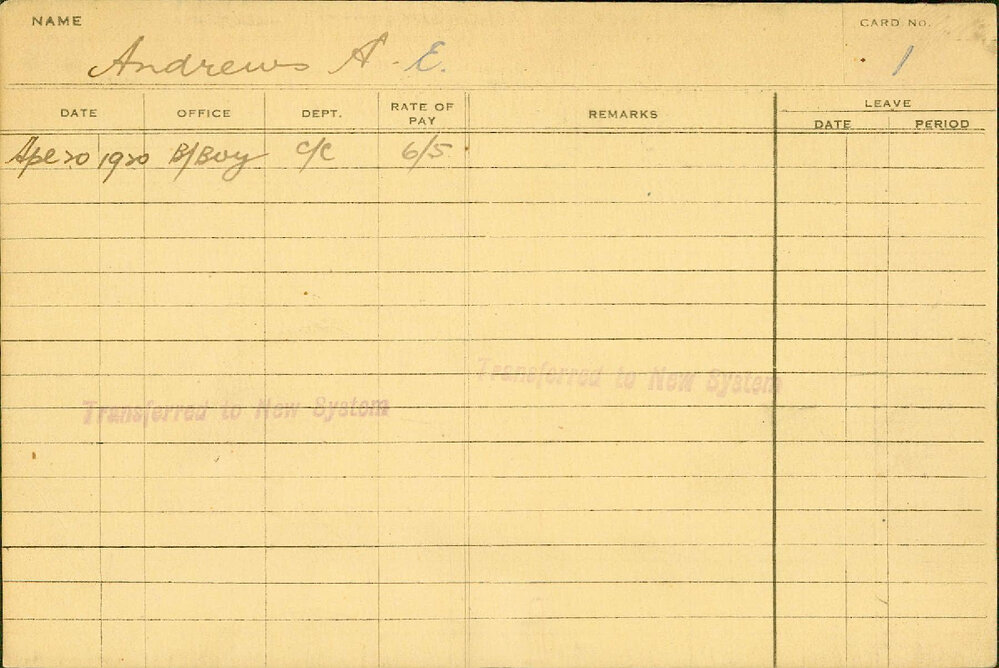 NAME
CARD No.
Andrews A. E.
1
DATE
OFFICE
DEPT.
RATE OF PAY
REMARKS
LEAVE
DATE
PERIOD
Apl 20 1920 B/Boy C/C 6/5
Transferred to New System
Transferred to New System